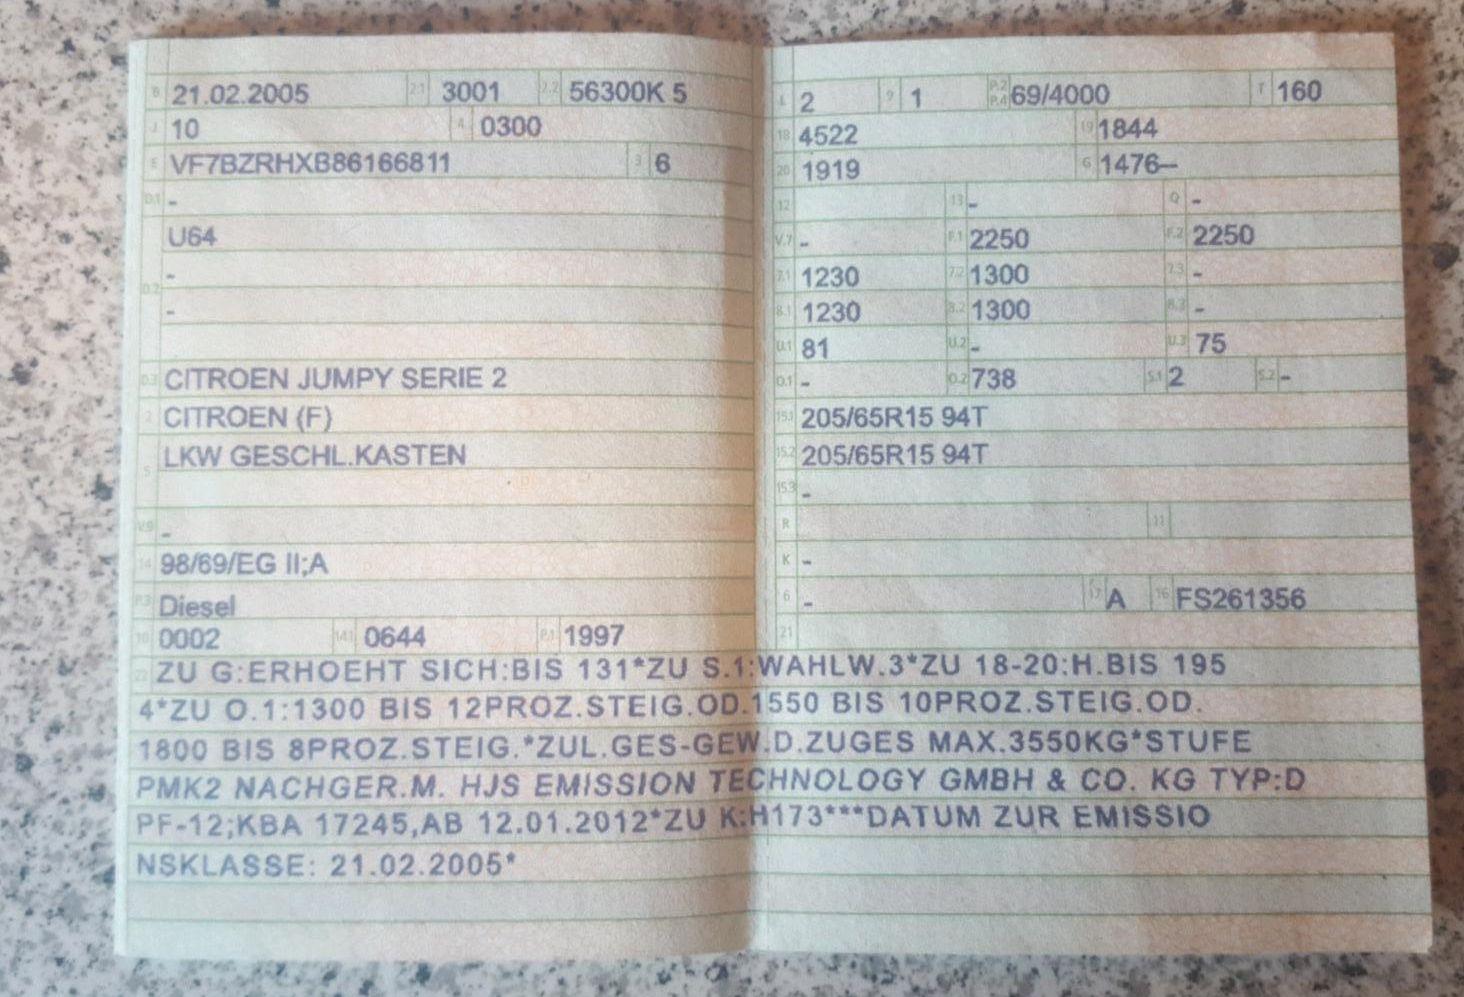 B 21.02.2005 2.1 3001 2.2 56300K 5
J 10 4 0300
E VF7BZRHXB86166811 3 6
D.1 -
U64
D.2 -
-
D.3 CITROEN JUMPY SERIE 2
2 CITROEN (F)
5 LKW GESCHL.KASTEN
V.9 -
14 98/69/EG II;A
P.3 Diesel
10 0002 14.1 0644 P.1 1997
L 2 9 1 P.2 P.4 69/4000 T 160
18 4522 19 1844
20 1919 G 1476–
12 13 - Q -
V.7 - F.1 2250 F.2 2250
7.1 1230 7.2 1300 7.3 -
8.1 1230 8.2 1300 8.3 -
U.1 81 U.2 - U.3 75
O.1 - O.2 738 S.1 2 S.2 -
15.1 205/65R15 94T
15.2 205/65R15 94T
15.3 -
R 11
K -
6 - 17 A 16 FS261356
21
22 ZU G:ERHOEHT SICH:BIS 131*ZU S.1:WAHLW.3*ZU 18-20:H.BIS 195
4*ZU O.1:1300 BIS 12PROZ.STEIG.OD.1550 BIS 10PROZ.STEIG.OD.
1800 BIS 8PROZ.STEIG.*ZUL.GES-GEW.D.ZUGES MAX.3550KG*STUFE
PMK2 NACHGER.M. HJS EMISSION TECHNOLOGY GMBH & CO. KG TYP:D
PF-12;KBA 17245,AB 12.01.2012*ZU K:H173***DATUM ZUR EMISSIO
NSKLASSE: 21.02.2005*